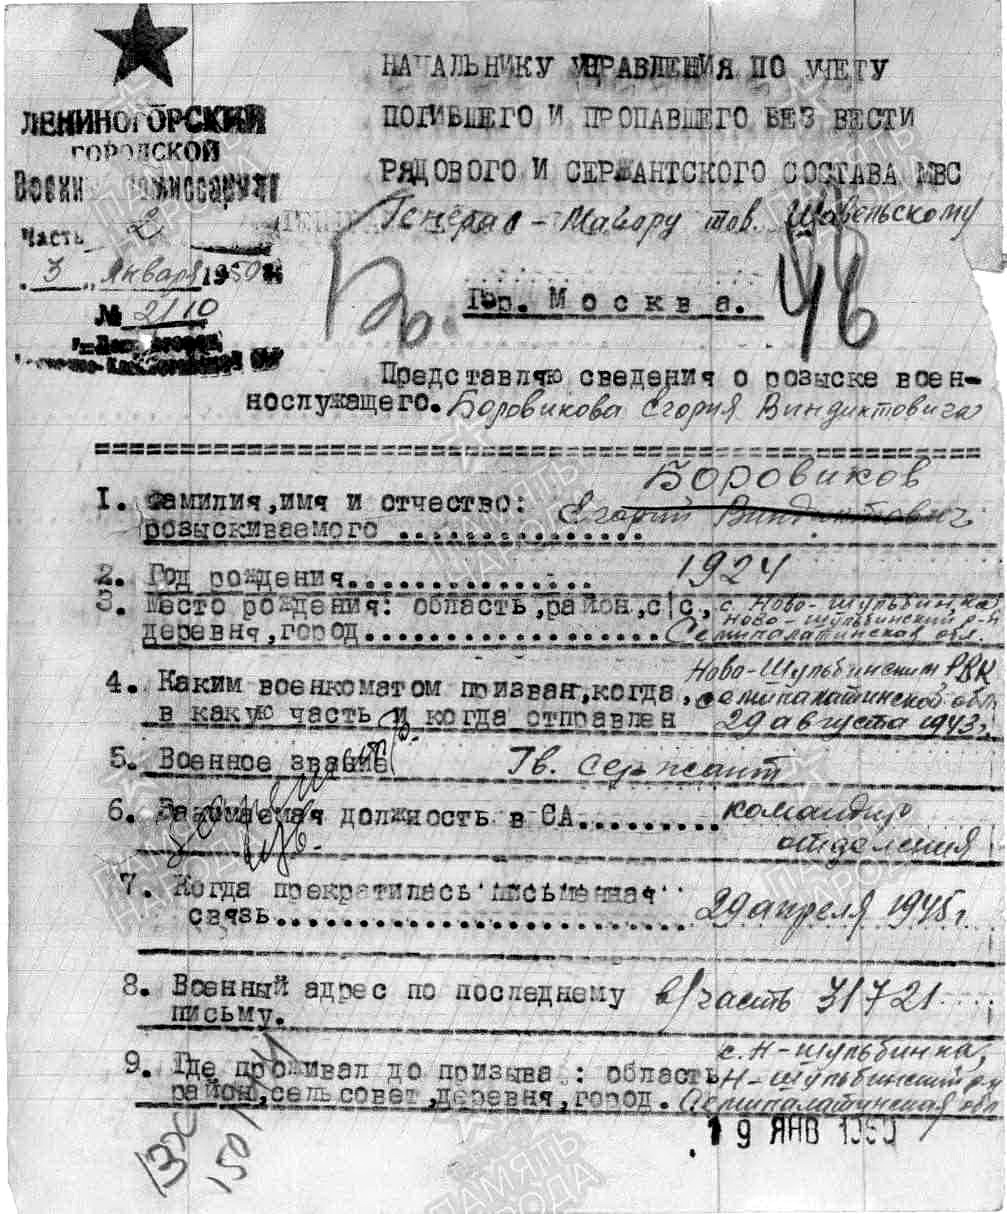 ЛЕНИНОГОРСКИЙ
ГОРОДСКОЙ
Часть 2
"3" Января 1950
№ 2/10
НАЧАЛЬНИКУ УПРАВЛЕНИЯ ПО УЧЕТУ
ПОГИБШЕГО И ПРОПАВШЕГО БЕЗ ВЕСТИ
РЯДОВОГО И СЕРЖАНТСКОГО СОСТАВА МВС
Генерал-Майору тов. Шавельскому
46
Гор. Москва.
Представляю сведения о розыске воен-
нослужащего. Боровикова Егория Виндиктовича
Боровиков
1. Фамилия, имя и отчество: Егорий Виндиктович
розыскиваемого ...............
2. Год рождения............... 1924
3. Место рождения: область, район, с/с, с. Ново-Шульбинка
Ново-Шульбинский р-н
деревня, город.................. Семипалатинская обл.
4. Каким военкоматом призван, когда, Ново-Шульбинским РВК
семипалатинской обл.
в какую часть и когда отправлен 29 августа 1943г.
5. Военное звание Гв. сержант
6. Занимаемая должность в СА......... командир
отделения
7. Когда прекратилась письменная
связь......................... 29 апреля 1945г.
8. Военный адрес по последнему в/часть 31721
письму.
9. Где проживал до призыва: область, с. Н-шульбинка,
Н-шульбинский р-н
район, сельсовет, деревня, город. Семипалатинская обл
19 ЯНВ 1950
ПАМЯТЬ
НАРОДА